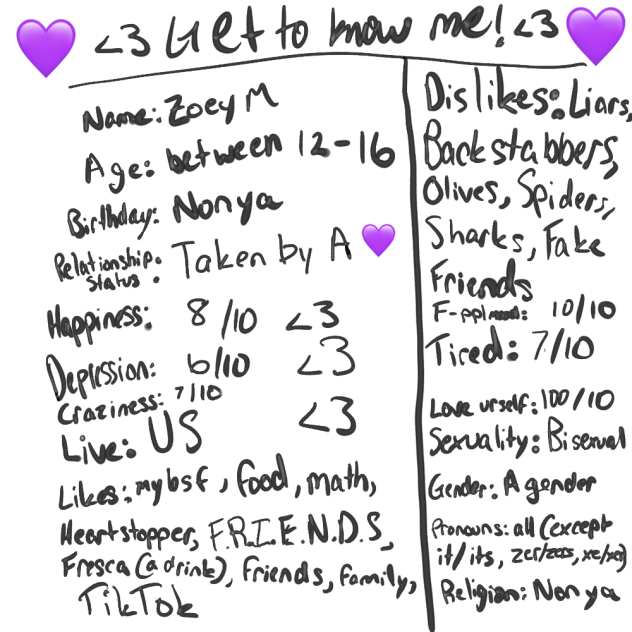 <3 Get to know me! <3
Name: Zoey M
Age: between 12-16
Birthday: Nonya
Relationship status: Taken by A
Happiness: 8/10 <3
Depression: 6/10 <3
Craziness: 7/10
Live: US <3
Likes: my bsf, food, math,
Heartstopper, F.R.I.E.N.D.S,
Fresca (a drink), friends, family,
TikTok
Dislikes: Liars,
Backstabbers,
Olives, Spiders,
Sharks, Fake
Friends
F-ppl: 10/10
Tired: 7/10
Love urself: 100/10
Sexuality: Bisexual
Gender: Agender
Pronouns: all (except
it/its, zer/zers, xe/xey)
Religion: Nonya